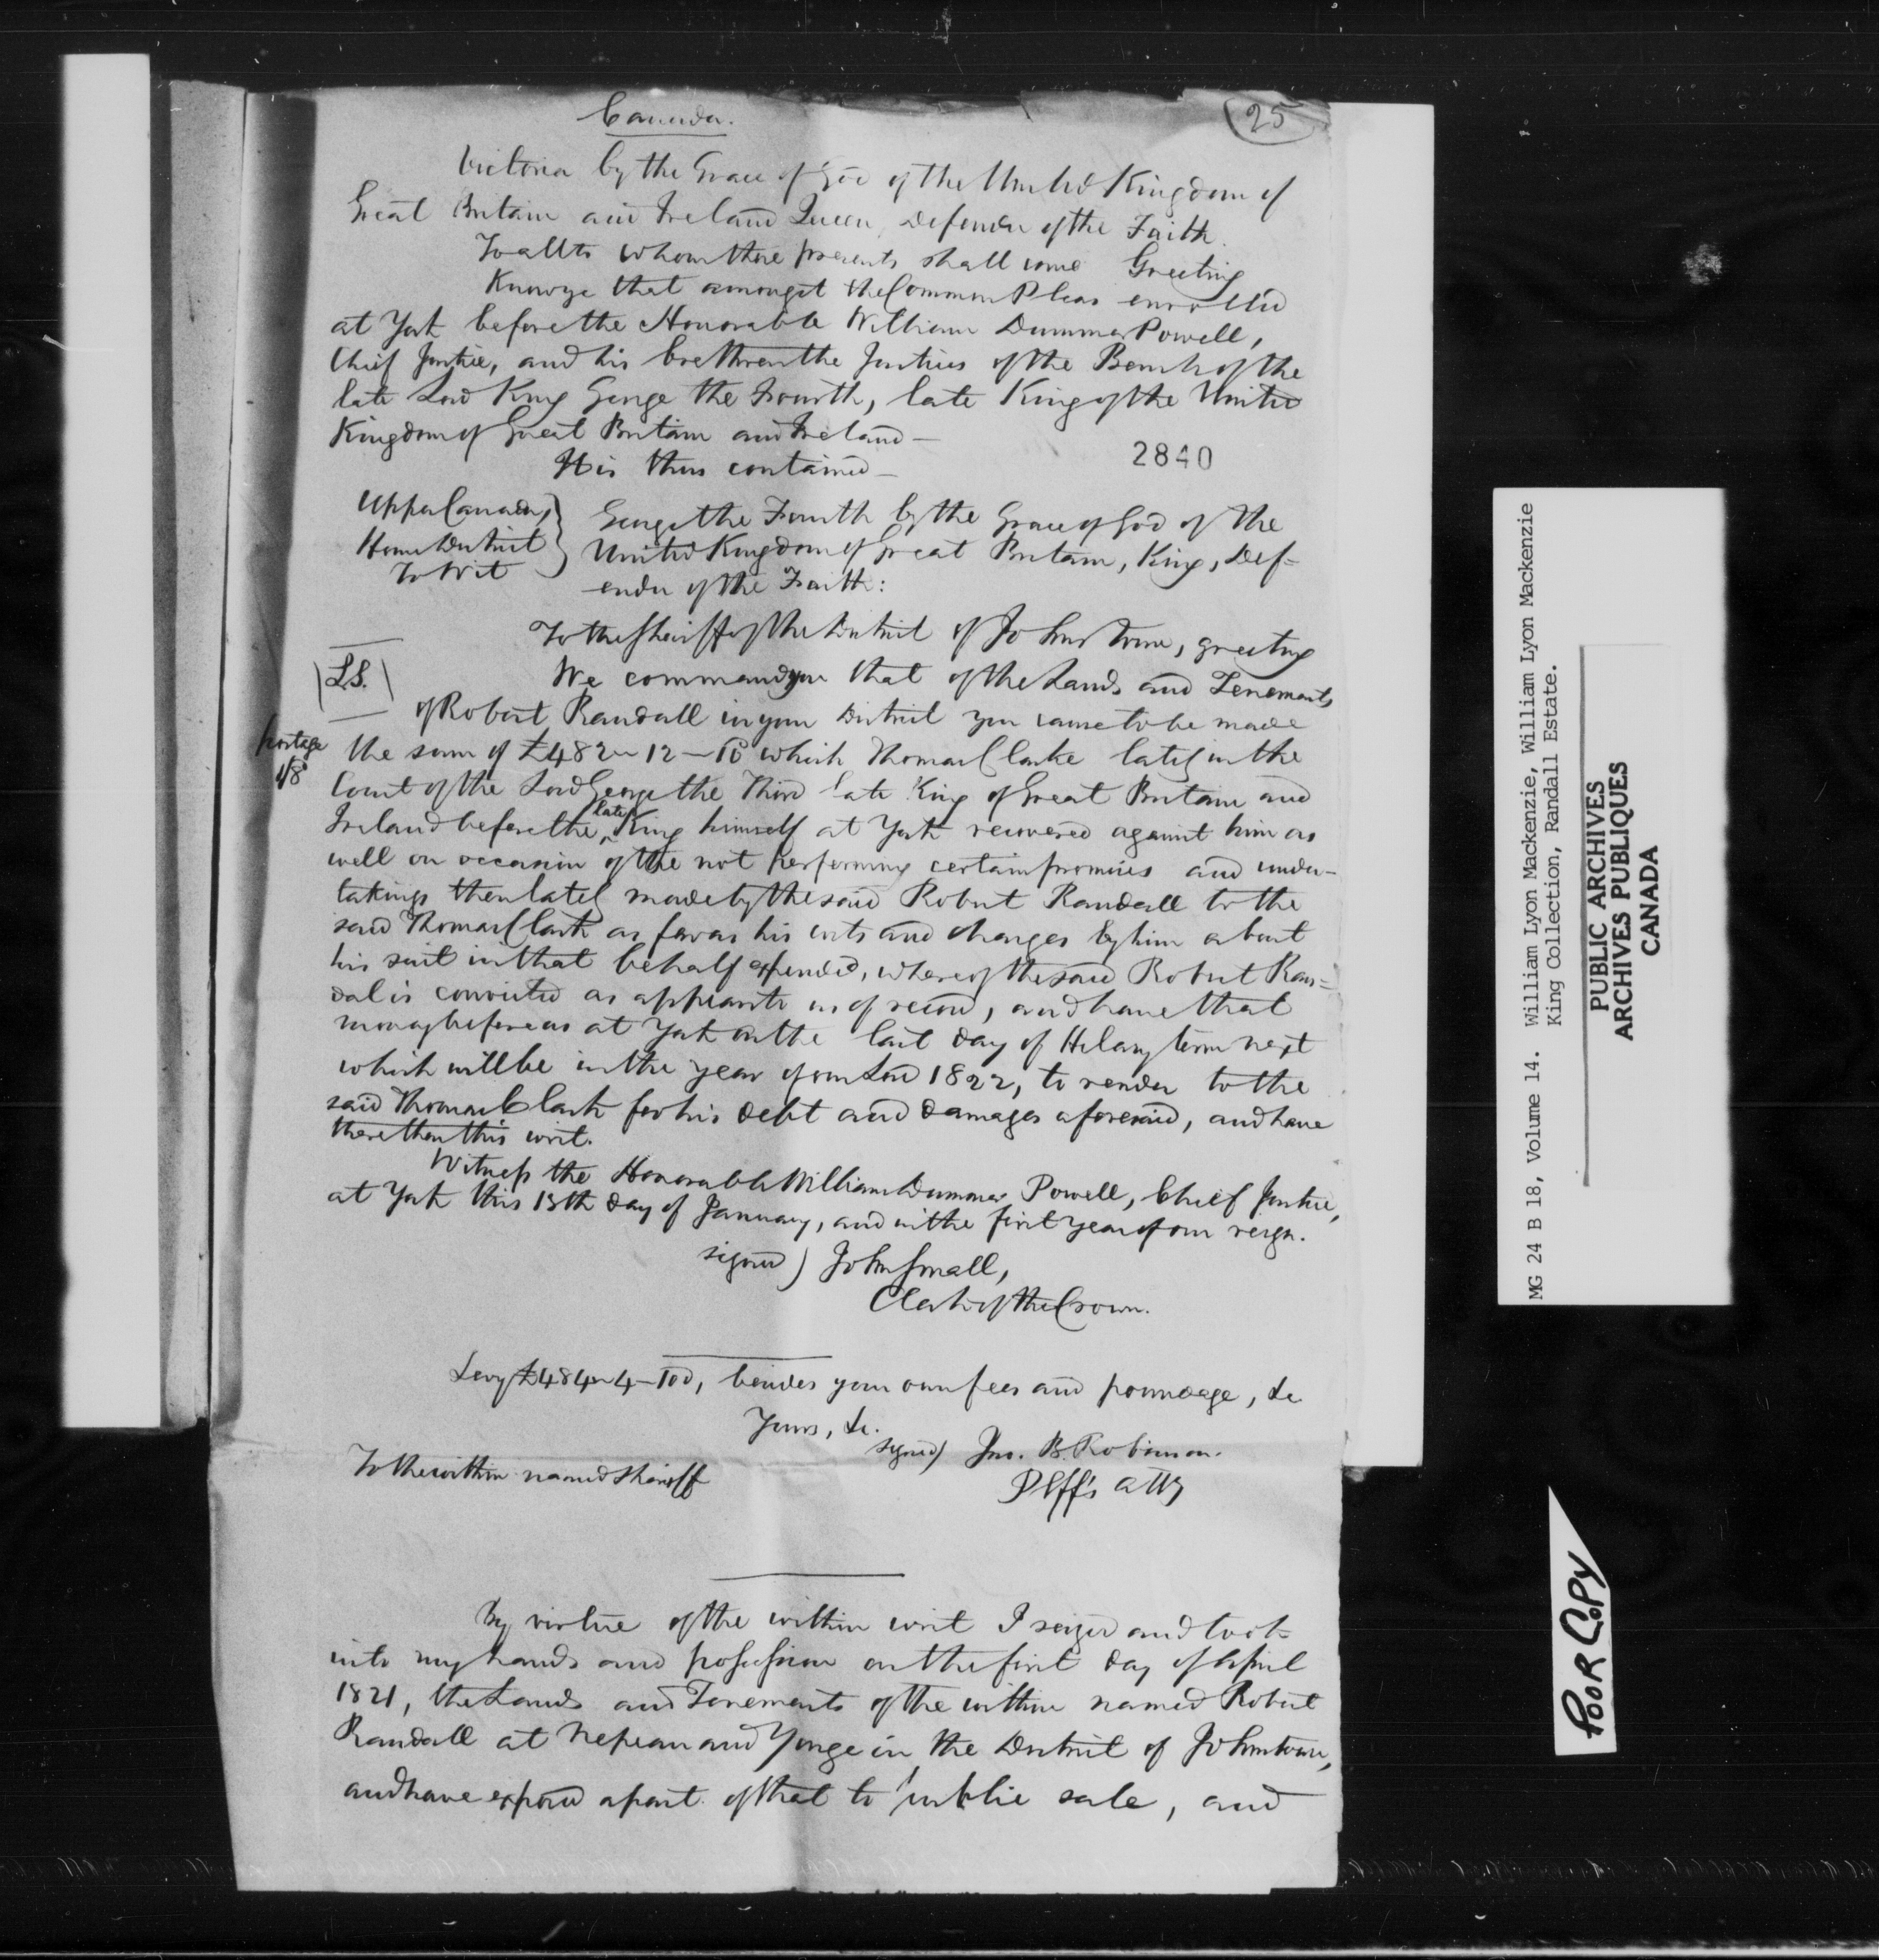 Canada.
25
Victoria by the Grace of God of the United Kingdom of
Great Britain and Ireland Queen, Defender of the Faith.
To all to whom these presents shall come Greeting
Know ye that amongst the Common Pleas enrolled
at York before the Honorable William Dummer Powell,
Chief Justice, and his brethren the Justices of the Bench of the
late Lord King George the Fourth, late King of the United
Kingdom of Great Britain and Ireland —
It is thus contained —
2840
Upper Canada,
Home District
To Wit
George the Fourth by the Grace of God of the
United Kingdom of Great Britain, King, Def-
ender of the Faith:
To the Sheriff of the District of Johnstown, greeting
L.S.
We command you that of the Lands and Tenements
of Robert Randall in your District you cause to be made
postage
1/8
the sum of £482 - 12 - 10 which Thomas Clarke lately in the
Court of the Lord George the Third late King of Great Britain and
Ireland before the late King himself at York recovered against him as
well on occasion of the not performing certain promises and under-
takings then lately made by the said Robert Randall to the
said Thomas Clark as for as his costs and charges by him about
his suit in that behalf expended, whereof the said Robert Ran=
dal is convicted as appears to us of record, and have that
money before us at York on the last day of Hilary term next
which will be in the year of our Lord 1822, to render to the
said Thomas Clark for his debt and damages aforesaid, and have
there then this writ.
Witness the Honorable William Dummer Powell, Chief Justice,
at York this 13th day of January, and in the first year of our reign.
signed) John Small,
Clerk of the Crown.
Levy £484 - 4 - 10d, besides your own fees and poundage, &c
Yours, &c.
signed) Jno. B. Robinson.
Plff's atty
To the within named Sheriff
By virtue of the within writ I seized and took
into my hands and possession on the first day of April
1821, the Lands and Tenements of the within named Robert
Randall at Nepean and Yonge in the District of Johnstown,
and have exposed a part of that to public sale, and
MG 24 B 18, Volume 14. William Lyon Mackenzie, William Lyon Mackenzie
King Collection, Randall Estate.
PUBLIC ARCHIVES
ARCHIVES PUBLIQUES
CANADA
POOR COPY